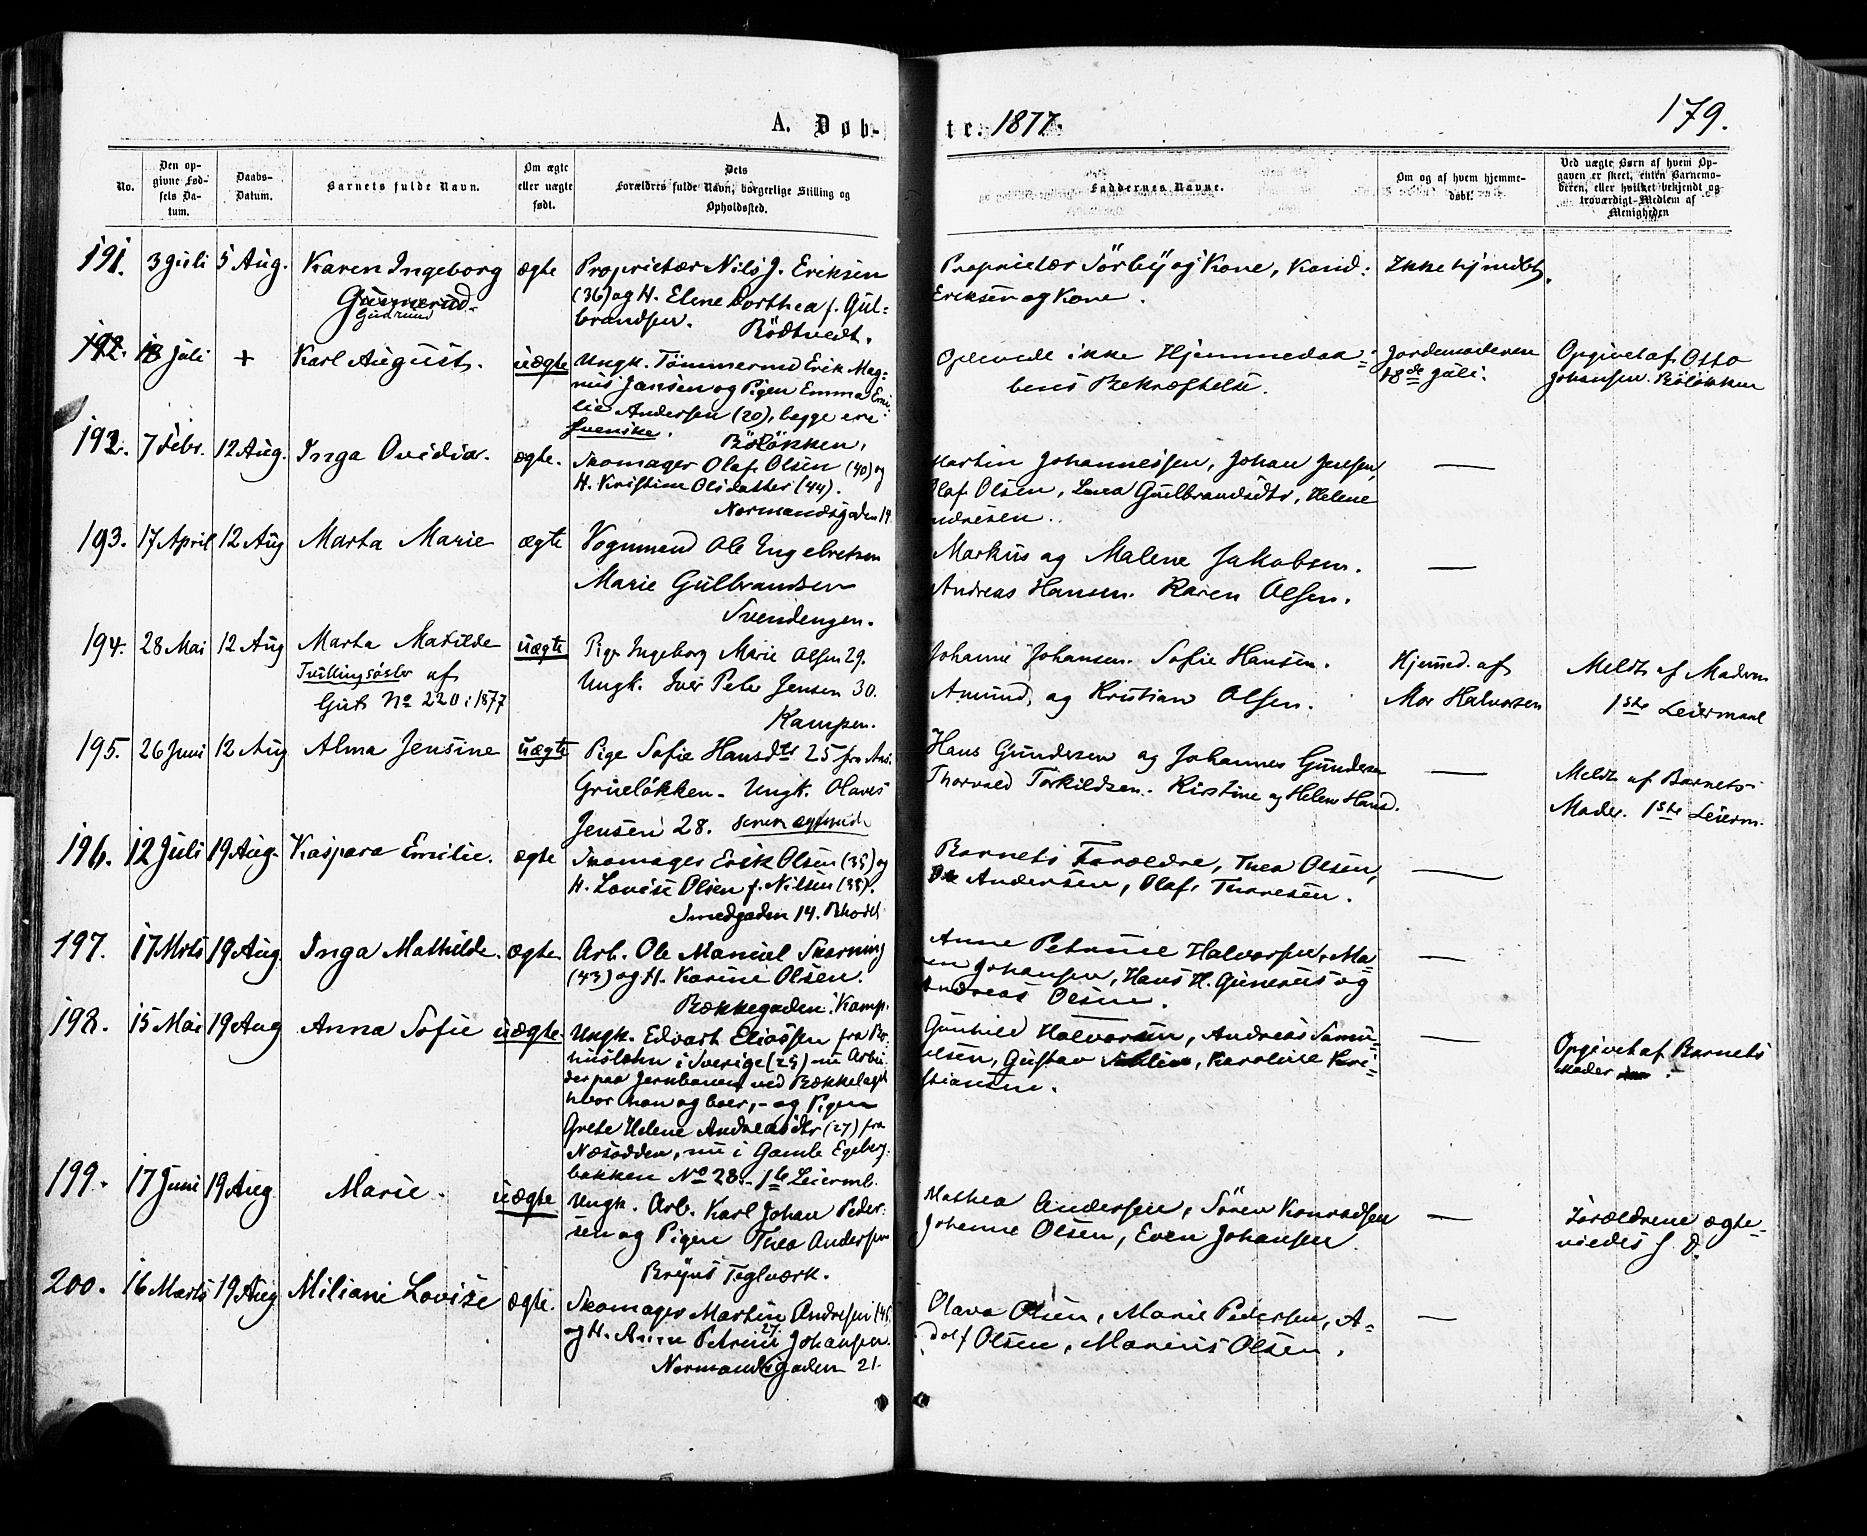 179.
A. Døb-
te. 1877.
No.
Den opgivne Fødsels Datum.
Daabs-Datum.
Barnets fulde Navn.
Om ægte eller uægte født.
Dets Forældres fulde Navn, borgerlige Stilling og Opholdssted.
Faddernes Navne.
Om og af hvem hjemmedøbt.
Ved uægte Børn af hvem Opgaven er skeet, enten Barnemoderen, eller hvilket bekjendt og troværdigt Medlem af Menigheden
191. 3 Juli 5 Aug. Karen Ingeborg ægte
Gudrund
Proprietær Nils J. Eriksen
(36) og H. Eline Dorthea f. Gul-
brandsen.
Rödtvedt.
Proprietær Sörby og Kone, Kand:
Eriksen og Kone.
Ikke hjmdbt.
192. 18 Juli + Karl August. uægte
Ungk. Tømmermd Erik Mag-
nus Jansen og Pigen Emma Emi-
lie Andersen (20), begge ere
Svenske.
Bölökken.
Oplevede ikke Hjemmedaa-
bens Bekræftelse.
Jordemoderen
18de Juli.
Opgivet af Otto
Johansen. Bölökken
192. 7 Febr. 12 Aug. Inga Ovidia. ægte.
Skomager Olaf Olsen (40) og
H. Kristine Olsdatter (44).
Normandsgaden 19
Martin Johannessen, Johan Jensen,
Olaf Olsen, Lena Gulbrandsdtr, Helene
Andresen.
193. 17 April 12 Aug Marta Marie ægte
Vognmand Ole Engebretsen
Marie Gulbrandsen
Svendengen.
Markus og Malene Jakobsen.
Andreas Hansen. Karen Olsen.
194. 28 Mai 12 Aug Marta Matilde uægte
Tvillingsøster af
Gut No 220 i 1877
Pige Ingeborg Marie Olsen 29.
Ungk. Iver Peter Jensen 30.
Kampen.
Johanne Johansen. Sofie Hansen.
Amund og Kristian Olsen.
Hjemd. af
Mor Halvorsen
Meldt af Moderen
1ste Leiermaal
195. 26 Juni 12 Aug Alma Jensine uægte
Pige Sofie Hansdtr 25 fra
Grüeløkken. Ungk. Olaves
Jensen 28.
Hans Gundersen og Johannes Gundersen
Thorvald Torkildsen. Kirstine og Helene Hansd.
Meldt af Barnets
Moder. 1ste Leierm.
196. 12 Juli 19 Aug. Kaspara Emilie. ægte
Skomager Erik Olsen (35) og
H. Lovise Olsen f. Nilsen (38).
Smedgaden 14.
Barnets Forældre, Thea Olsen,
Andersen, Olaf Thoresen.
197. 17 Mrts 19 Aug. Inga Mathilde. ægte
Arb. Ole Manuel Skarning
(43) og H. Karine Olsen.
Bækkegaden. Kamp.
Anne Petrine Halvorsen, Ma-
ren Johansen, Hans H. Gunerius og
Andreas Olsen.
198. 15 Mai 19 Aug Anna Sofie uægte.
Ungk. Edvart Eliassen fra Bo-
huslehn i Sverige (25) nu Arbei-
der paa Jernbanen ved Bækkelaget
hvor han og boer, - og Pigen
Grete Helene Andreasdtr (27) fra
Næsodden, nu i Gamle Egeberg-
bakken No 28. - 1te Leierml.
Gunhild Halvorsen, Andreas Samu-
elsen, Gustav, Karoline Kri-
stiansen.
Opgivet af Barnets
Moder.
199. 17 Juni 19 Aug. Marie. uægte
Ungk. Arb. Karl Johan Peder-
sen og Pigen Thea Andersen
Bryns Teglværk.
Mathea Andersen, Sören Konradsen
Johanne Olsen, Even Johansen.
Forældrene ægte-
viedes s. D.
200. 16 Marts 19 Aug Miliane Lovise ægte.
Skomager Martin Andresen
og H. Anne Petrine 27 Johansen.
Normandsgaden 21.
Olava Olsen, Marie Pedersen, A-
dolf Olsen, Marius Olsen.